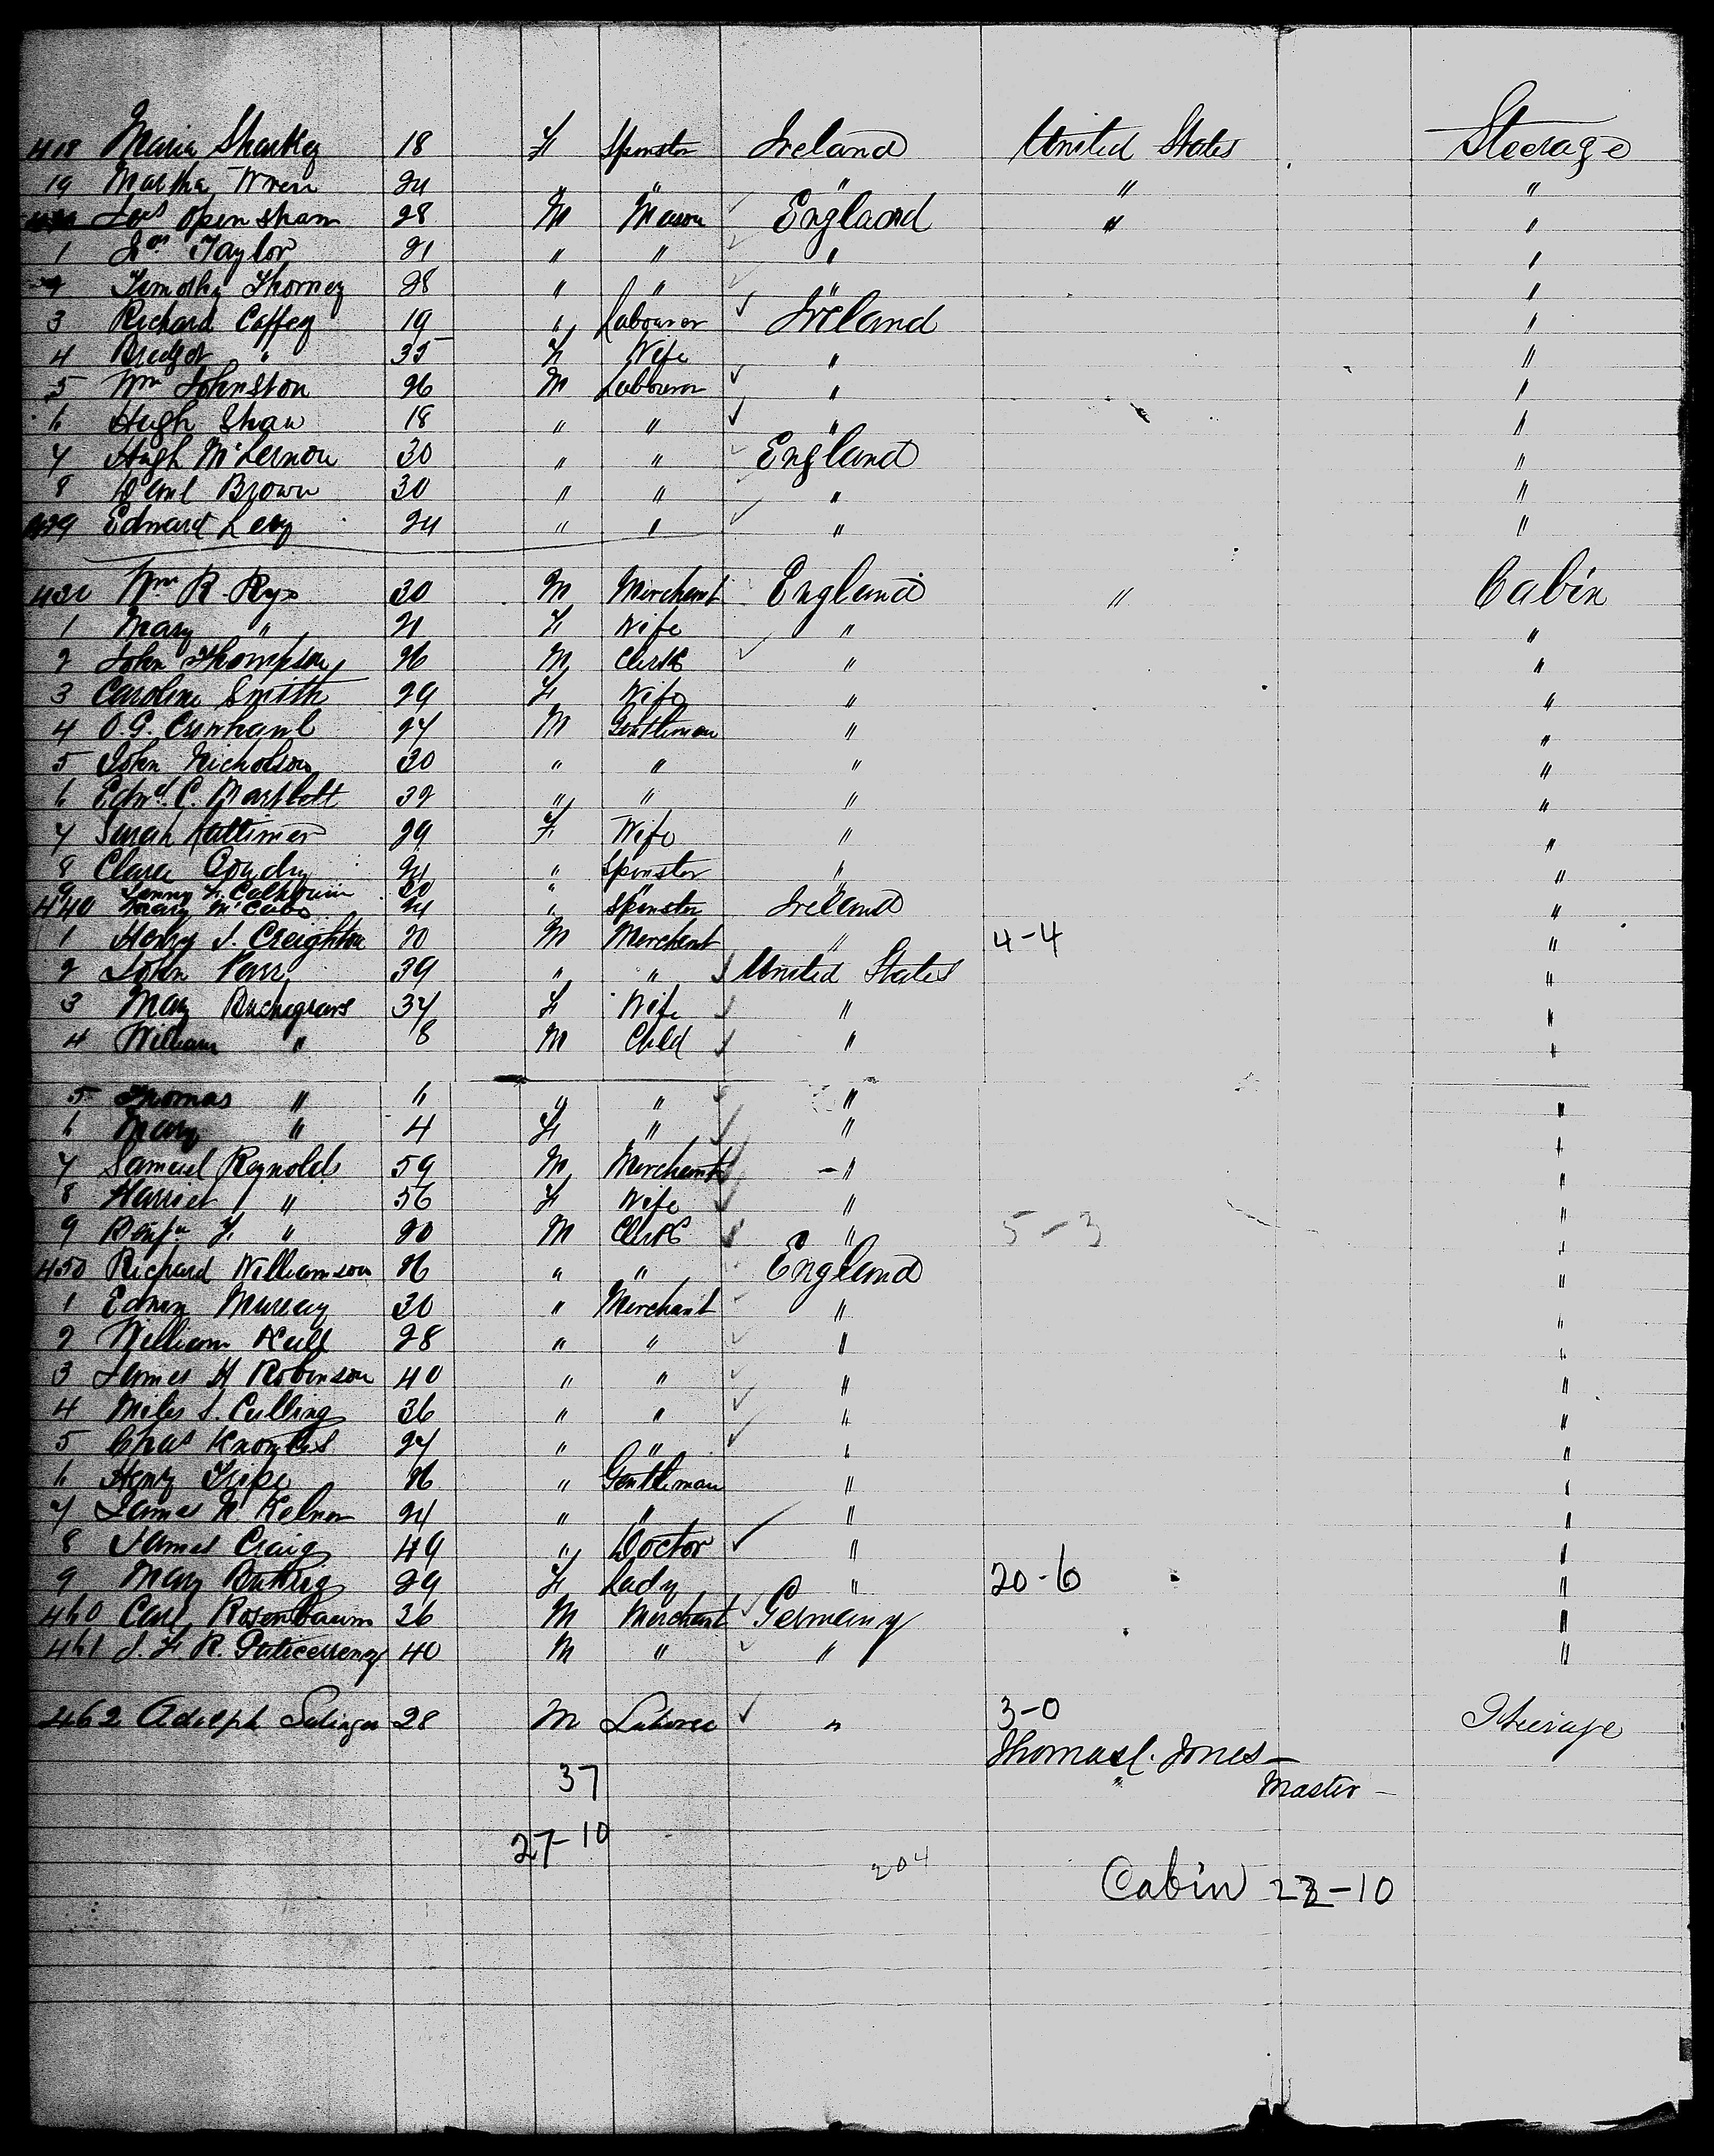 418 Maria Sharkey 18 F Spinster Ireland United States Steerage
19 Martha Wren 24 " " " " "
Jos Openshaw 28 M Mason England " "
1 Taylor 21 " " " "
Timothy Thorney 28 " " " "
3 Richard Caffey 19 " Labourer Ireland "
4 Bridget " 35 F Wife " "
5 Wm Johnston 26 M Labourer " "
6 Hugh Shaw 18 " " " "
7 Hugh McLernon 30 " " England "
8 Brown 30 " " " "
429 Edward Levy 24 " " " "
430 Wm R. Rys 30 M Merchant England " Cabin
1 Mary " 21 F Wife " "
2 John Thompson 26 M Clerk " "
3 Caroline Smith 29 F Wife " "
4 O. G. 27 M Gentleman " "
5 John Nicholson 30 " " " "
6 Edwd. C. 32 " " " "
7 Sarah Lattimer 29 F Wife " "
8 Clara 24 " Spinster " "
9 F. Calhoun 20 " " " 
440 Mary McCabe 24 " Spinster Ireland "
1 Henry J. Creighton 20 M Merchant " 4-4 "
2 John 39 " " United States "
3 Mary 37 F Wife " "
4 William " 8 M Child " "
5 Thomas " 6 " " " "
6 Mary " 4 F " " "
7 Samuel Reynolds 59 M Merchant " "
8 Harriet " 56 F Wife " "
9 Benjn F. " 20 M Clerk " 5-3 "
450 Richard Williamson 26 " " England "
1 Edwin Murray 30 " Merchant " "
2 William Hall 28 " " " "
3 James H Robinson 40 " " " "
4 Miles S. Culling 36 " " " "
5 Chas Knowles 27 " " " "
6 Henry Tripe 26 " Gentleman " "
7 James 24 " " " "
8 James Craig 49 " Doctor " "
9 Mary 29 F Lady " 20-6 "
460 Carl Rosenbaum 36 M Merchant Germany "
461 J. F. R. 40 M " " "
462 Adolph Salinger 28 M Laborer " 3-0 Steerage
Thomas C. Jones
Master
37
27-10
204
Cabin 22-10